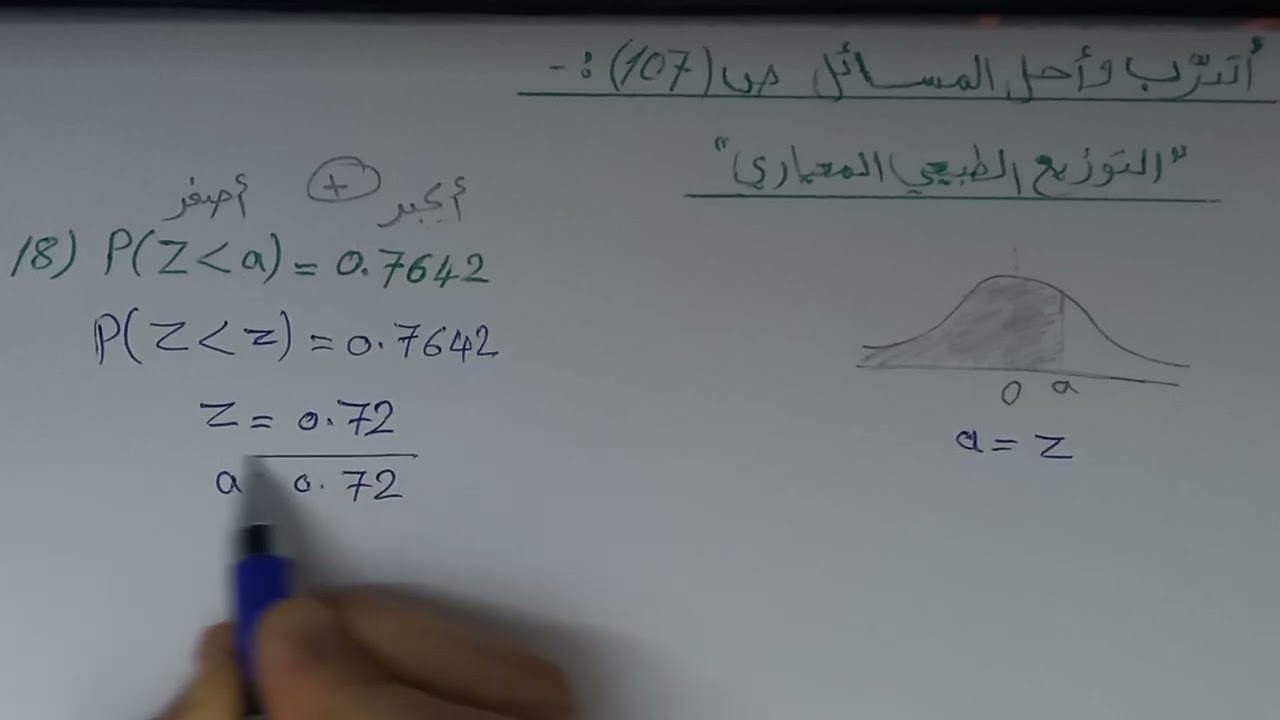 أتدرّب وأحل المسائل ص (107) :-
"التوزيع الطبيعي المعياري"
أكبر + أصغر
18) P(Z < a) = 0.7642
P(Z < z) = 0.7642
z = 0.72
a 0.72
0 a
a = z